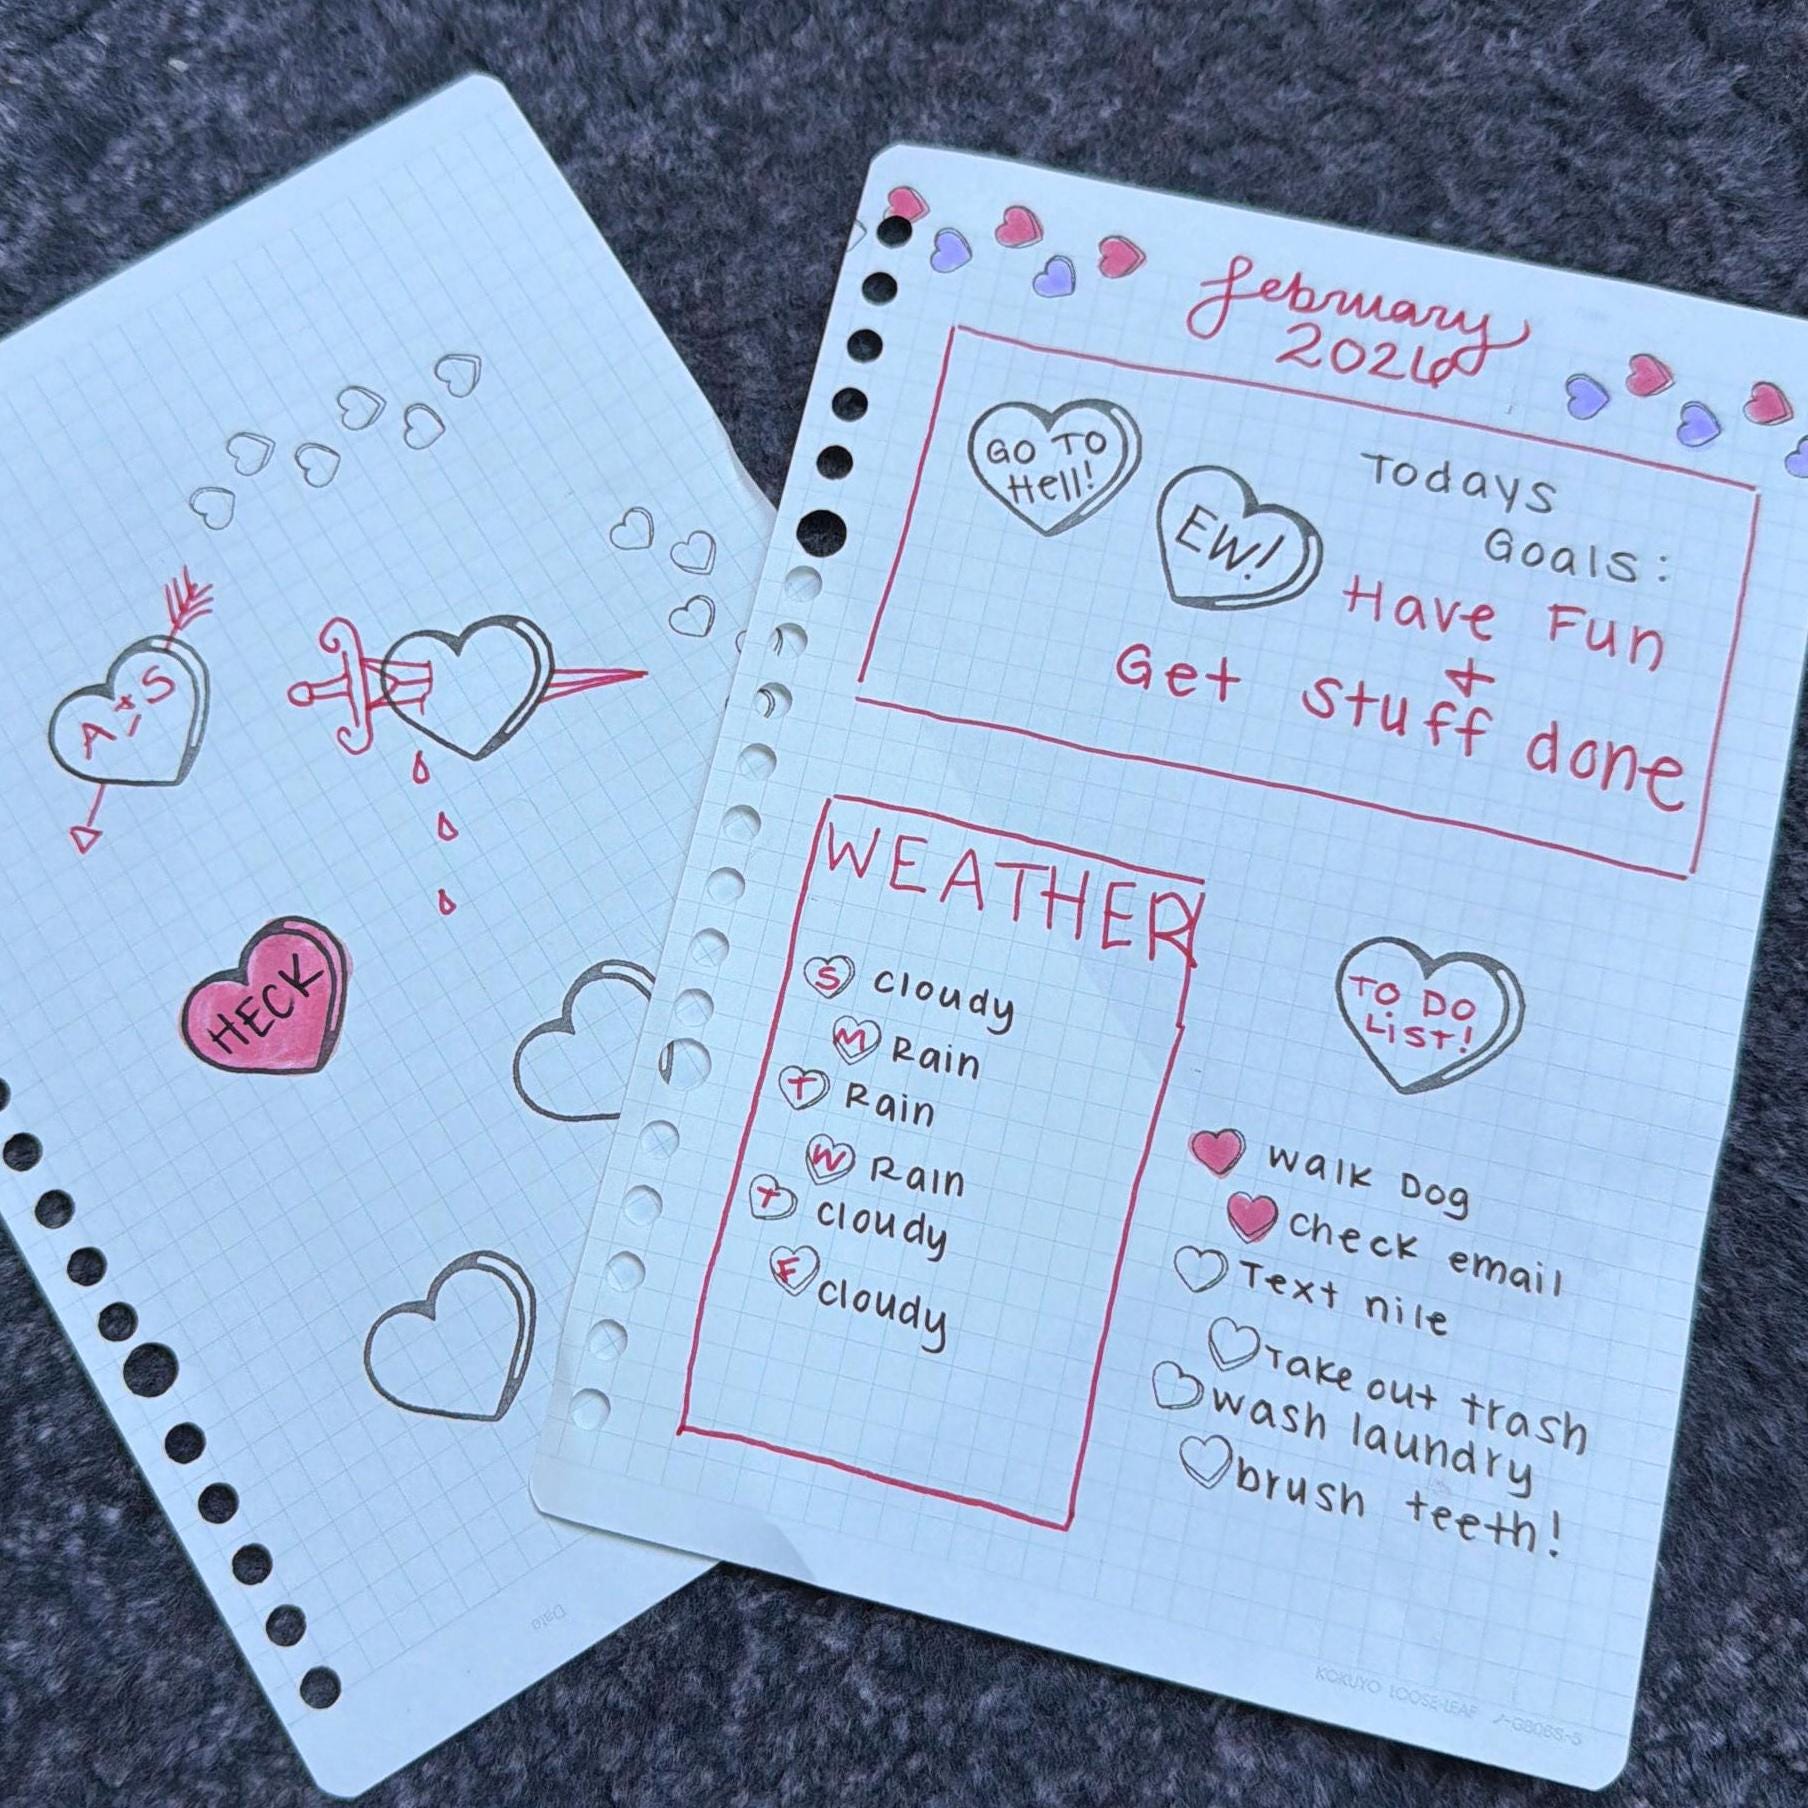 A + S
HECK
Date
february
2026
GO TO
Hell!
EW!
Todays
Goals:
Have Fun
+
Get stuff done
WEATHER
S cloudy
M Rain
T Rain
W Rain
T cloudy
F cloudy
TO DO
LiST!
walk Dog
check email
Text nile
Take out trash
wash laundry
brush teeth!
KOKUYO LOOSE-LEAF ノ-G808S-5